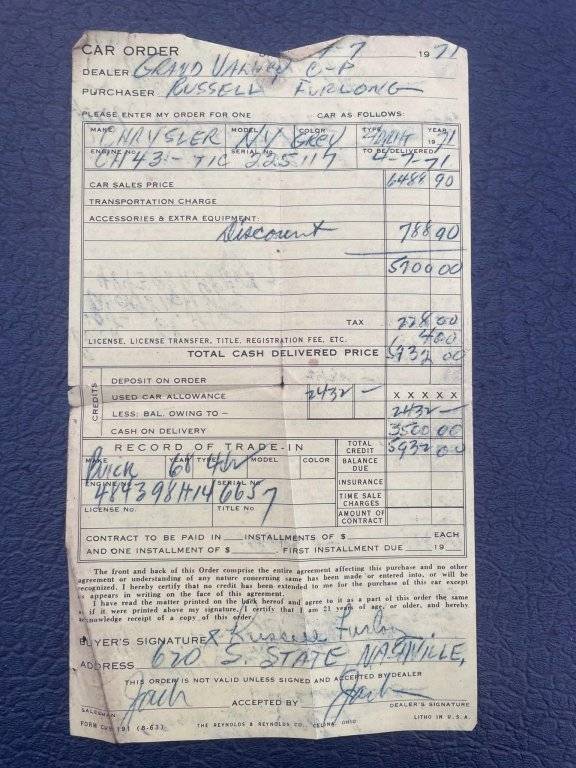 CAR ORDER 4-7 1971
DEALER GRAND VALLEY C-P
PURCHASER RUSSELL FURLONG
PLEASE ENTER MY ORDER FOR ONE CAR AS FOLLOWS:
MAKE MODEL COLOR TYPE YEAR
CHRYSLER N.Y. GREY 4DRHT 1971
ENGINE No. SERIAL No. TO BE DELIVERED
CH43- T1C 225117 4-7-71
CAR SALES PRICE 6488 90
TRANSPORTATION CHARGE
ACCESSORIES & EXTRA EQUIPMENT:
Discount 788 90
5700 00
TAX 228 00
LICENSE, LICENSE TRANSFER, TITLE, REGISTRATION FEE, ETC. 4 00
TOTAL CASH DELIVERED PRICE 5932 00
CREDITS
DEPOSIT ON ORDER
USED CAR ALLOWANCE 2432 — X X X X X
LESS: BAL. OWING TO — 2432 —
CASH ON DELIVERY 3500 00
RECORD OF TRADE-IN TOTAL CREDIT 5932 00
MAKE YEAR TYPE MODEL COLOR BALANCE DUE
Buick 68
ENGINE No. SERIAL No. INSURANCE
484398H146657 TIME SALE CHARGES
LICENSE No. TITLE No. AMOUNT OF CONTRACT
CONTRACT TO BE PAID IN INSTALLMENTS OF $ EACH
AND ONE INSTALLMENT OF $ FIRST INSTALLMENT DUE 19
The front and back of this Order comprise the entire agreement affecting this purchase and no other
agreement or understanding of any nature concerning same has been made or entered into, or will be
recognized. I hereby certify that no credit has been extended to me for the purchase of this car except
as appears in writing on the face of this agreement.
I have read the matter printed on the back hereof and agree to it as a part of this order the same
as if it were printed above my signature. I certify that I am 21 years of age, or older, and hereby
acknowledge receipt of a copy of this order.
BUYER'S SIGNATURE X Russell Furlong
ADDRESS 620 S. STATE NASHVILLE,
THIS ORDER IS NOT VALID UNLESS SIGNED AND ACCEPTED BY DEALER
Jack ACCEPTED BY Jack
SALESMAN DEALER'S SIGNATURE
FORM CUV 191 (8-63) THE REYNOLDS & REYNOLDS CO., CELINA, OHIO LITHO IN U.S.A.